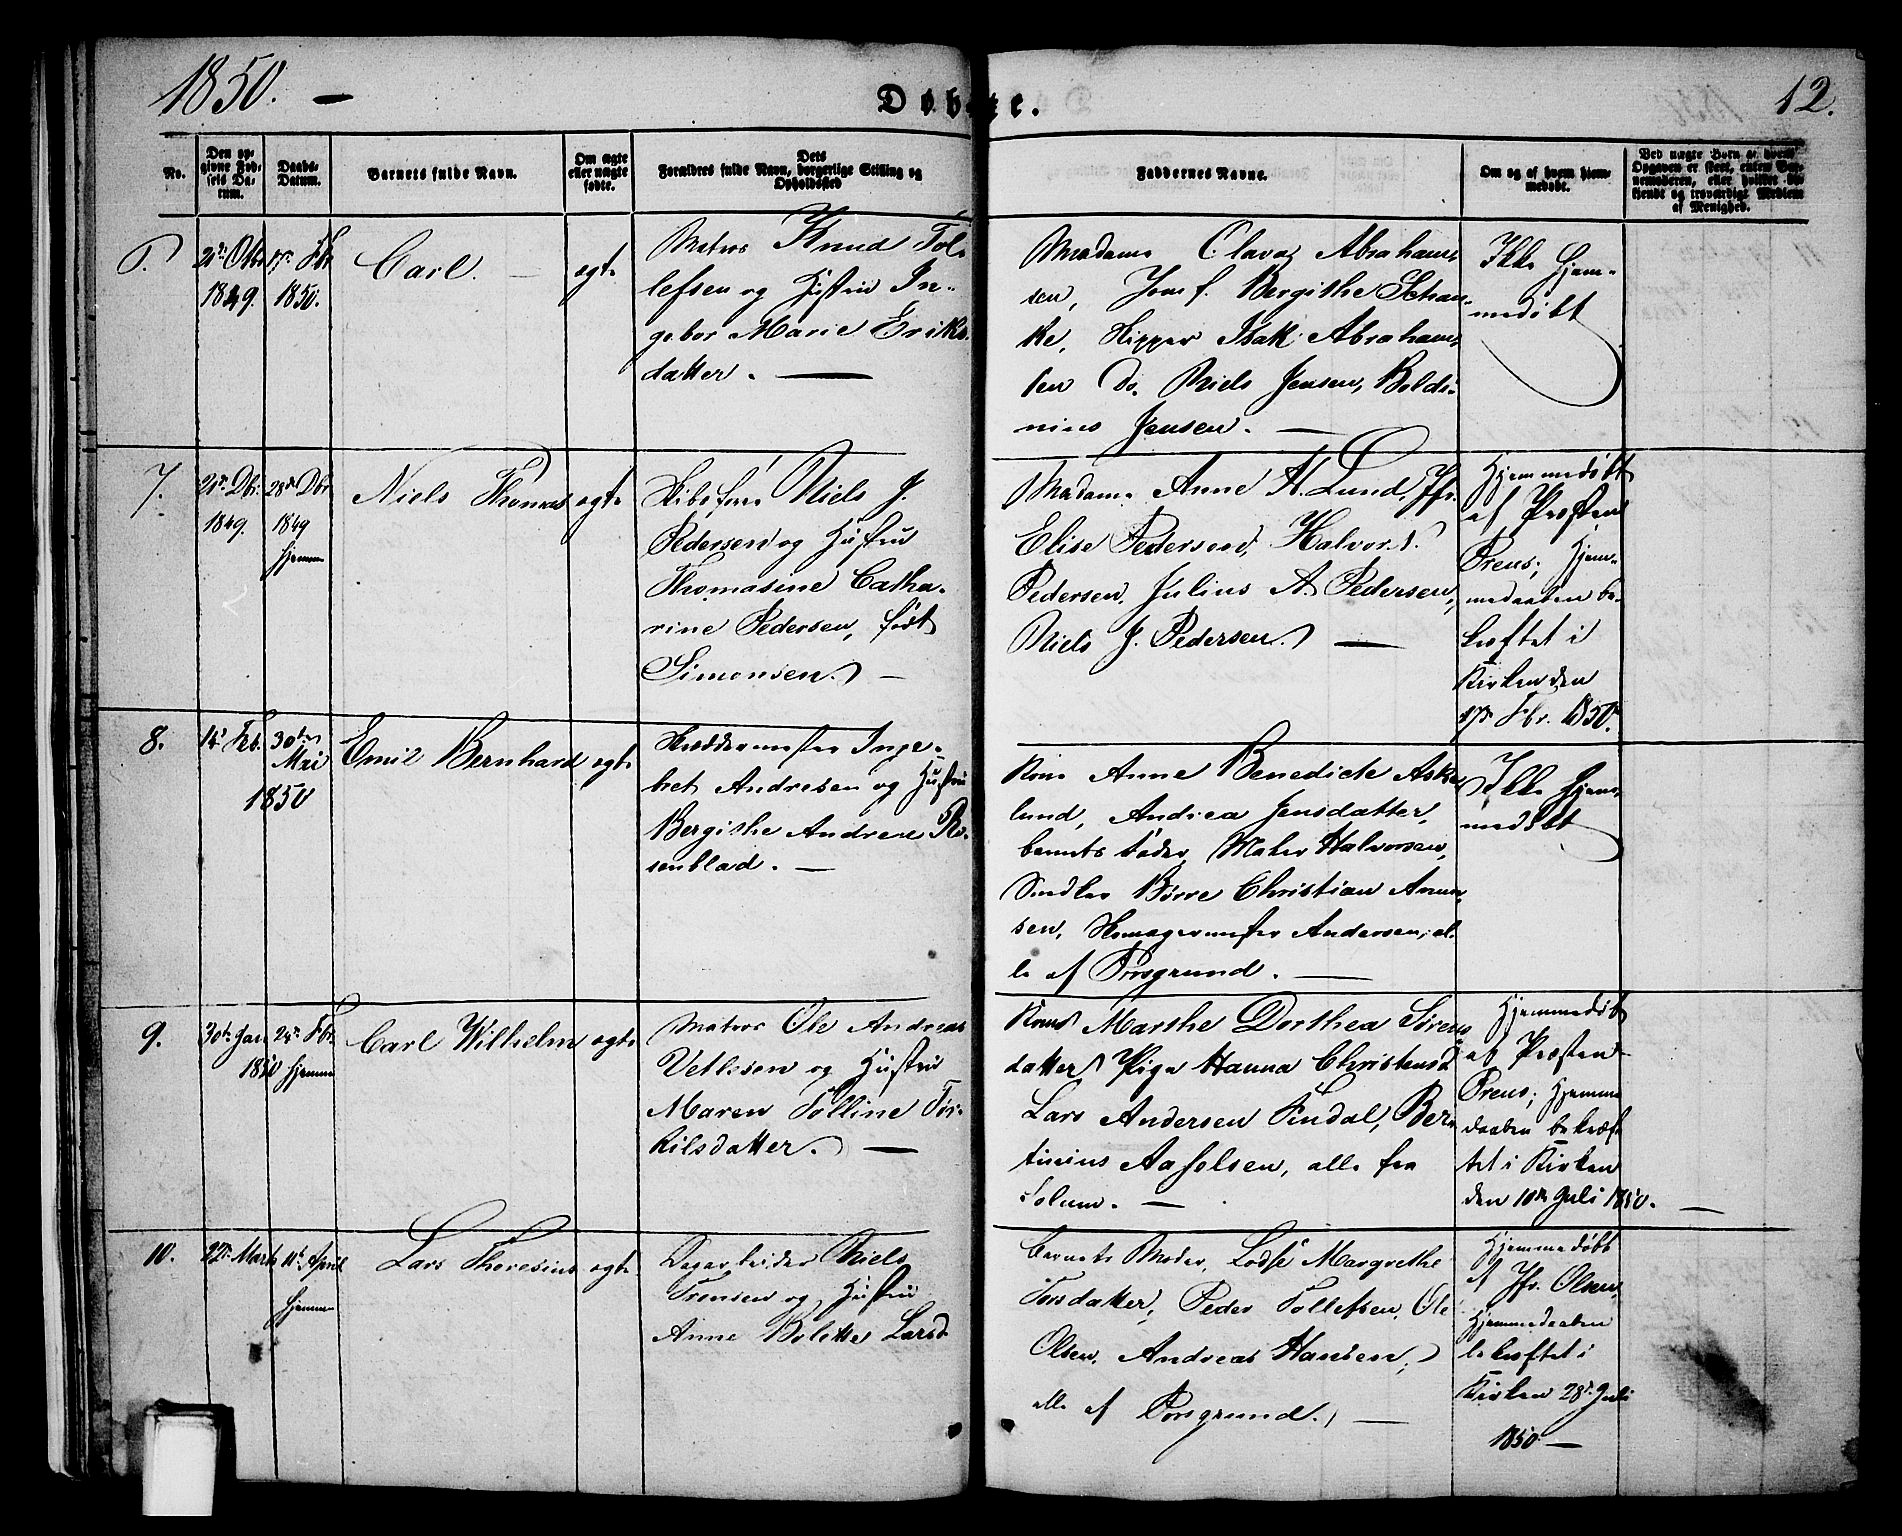 1850. —
Døbte.
12.
No.
Den op-
givne Fød-
sels Da-
tum.
Daabs-
Datum.
Barnets fulde Navn.
Om ægte
eller uægte
fødte.
Dets
Forældres fulde Navn, borgerlige Stilling og
Opholdssted
Faddernes Navne.
Om og af hvem hjem-
medøbt.
Ved uægte Børn af hvem
Opgaven er skeet, enten Bar-
nemoderen, eller hvilket be-
kjendt og troværdigt Medlem
af Menighed.
6.
1849.
17de Fbr
1850.
Carl. —
ægte
Matros Knud Tol-
lefsen og Hustru In-
gebor Marie Eriks-
datter. —
Madame Olava Abraham-
sen, Jomf. Bergithe Schan-
ke, Skipper Isak Abraham-
sen do. Niels Jensen, Boldi-
nius Jensen. —
Ikke Hjem-
medøbt
7.
Dbr.
1849.
28de Dbr
1849
hjemme
Niels Thomas
ægte
Skibsfører Niels J.
Pedersen og Hustru
Thomasine Catha-
rine Pedersen, født
Simonsen. —
Madame Anne H. Lund, Jfr.
Elise Pedersen, Halvor
Pedersen, Julius A. Pedersen,
Niels J. Pedersen. —
Hjemmedøbt
af Præsten
Preus; Hjem-
medaaben be-
kræftet i
Kirken den
17de Fbr. 1850.
8.
14de Feb.
30te
Mai
1850
Emil Bernhard
ægte
Skræddermester Inge-
bret Andresen og Hustru
Bergithe Andrea Ro-
senblad. —
Kone Anne Benedicte Aske-
lund, Andrea Jensdatter,
barnets Fader, Maler Halvorsen,
Snedker Børre Christian Amun-
sen, Skomagermester Andersen, al-
le af Porsgrund. —
Ikke Hjem-
medøbt
9.
30te Jan
1850
24de Fbr.
hjemme
Carl Wilhelm
ægte
Matros Ole Andreas
Vetlesen og Hustru
Maren Tolline Tor-
kilsdatter. —
Kone Marthe Dorthea Sørens-
datter, Pige Hanna Christensd.
Lars Andersen Findal, Ber-
tinius Aslelsen, alle fra
Solum. —
Hjemmedøbt
af Præsten
Preus; Hjemme-
daaben bekræf-
tet i Kirken
den 10de Juli 1850. —
10.
22de Marts
11te April
hjemme
Lars Thoresius
ægte
Dagarbeider Niels
Tronsen og Hustru
Anne Bolette Larsd.
Barnets Moder, Lodse Margrethe
Torsdatter, Peder Tollefsen, Ole
Olsen, Andreas Hansen,
alle af Porsgrund. —
Hjemmedøbt
af Jfr. Olsen,
Hjemmedaaben
bekræftet i
Kirken 28de Juli
1850 —